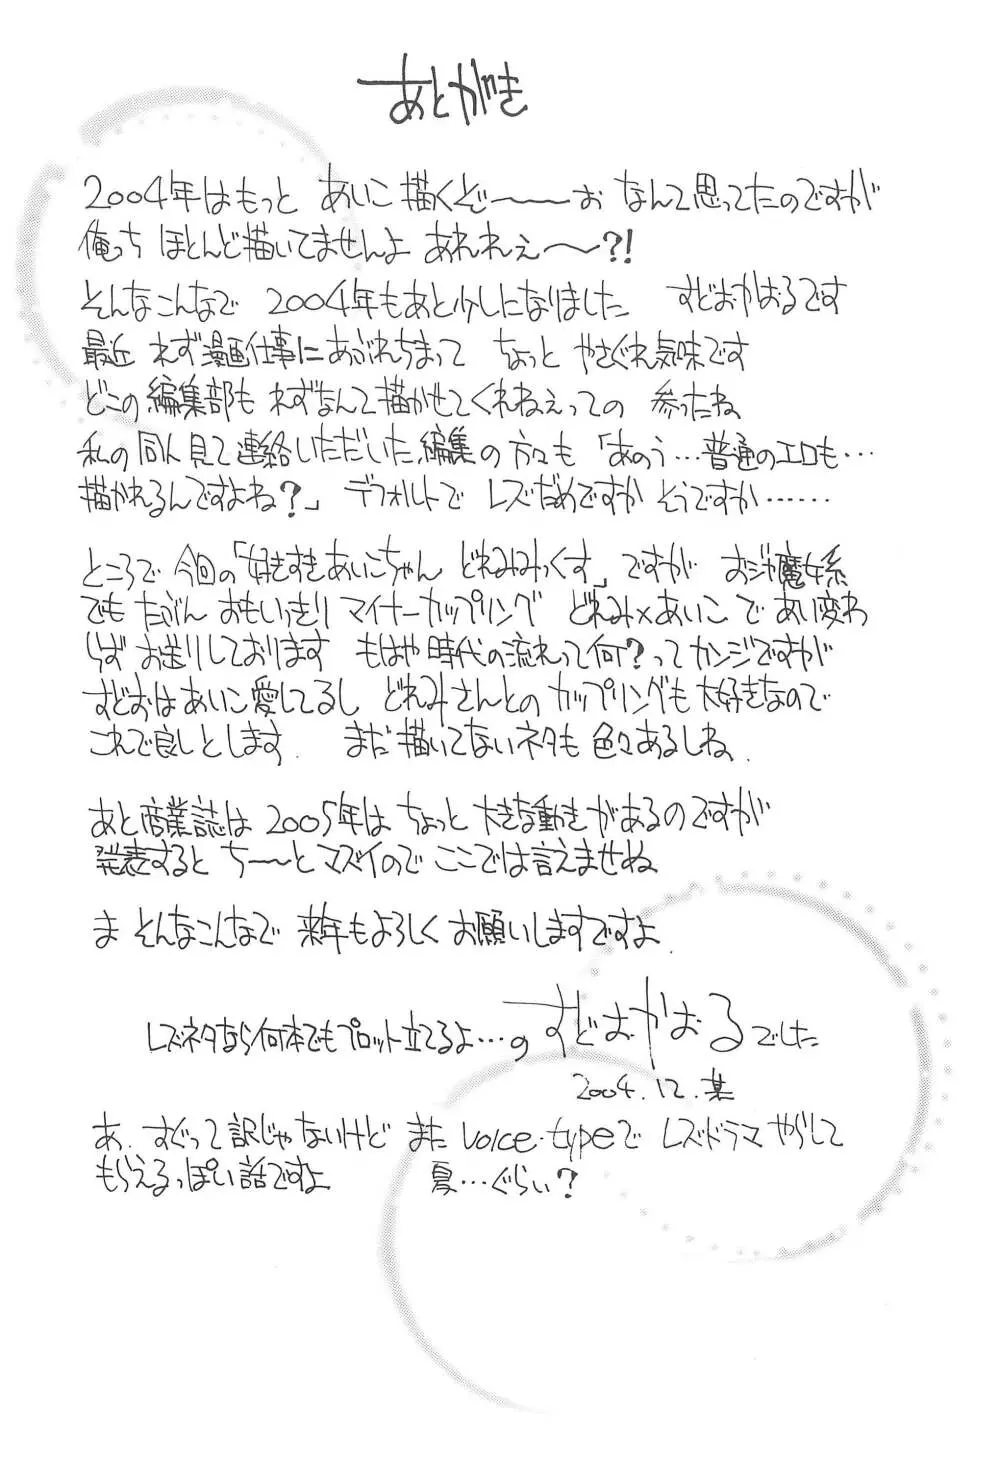 あとがき
2004年はもっと あいこ描くぞ〜〜〜ぉ なんて思ってたのですが
俺っち ほとんど描いてませんよ あれれぇ〜〜?!
そんなこんなで 2004年もあと少しになりました すどおかおるです
最近 れず漫画仕事にあぶれちまって ちょっと やさぐれ気味です
どこの編集部も れずなんて描かせてくれねぇっての 参ったね
私の同人見て連絡いただいた編集の方々も「あのう…普通のエロも…
描かれるんですよね?」 デフォルトで レズだめですか そうですか……
ところで 今回の「好きすきあいこちゃん どれみみっくす」ですが おジャ魔女系
でも たぶん おもいっきり マイナーカップリング どれみ×あいこ で あい変わ
らず お送りしております もはや 時代の流れって何?ってカンジですが
すどおはあいこ愛してるし どれみさんとの カップリングも 大好きなので
これで良しとします. まだ描いてないネタも 色々あるしね.
あと商業誌は 2005年は ちょっと大きな動きがあるのですが
発表すると ち〜〜とマズイので ここでは言えませぬ
ま そんなこんなで 来年もよろしく お願いしますですよ.
レズネタなら何本でもプロット立てるよ…の すどおかおる でした
2004.12.某
あ. すぐって訳じゃないけど また voice・typeで レズドラマ やらして
もらえるっぽい話ですよ 夏…ぐらい?